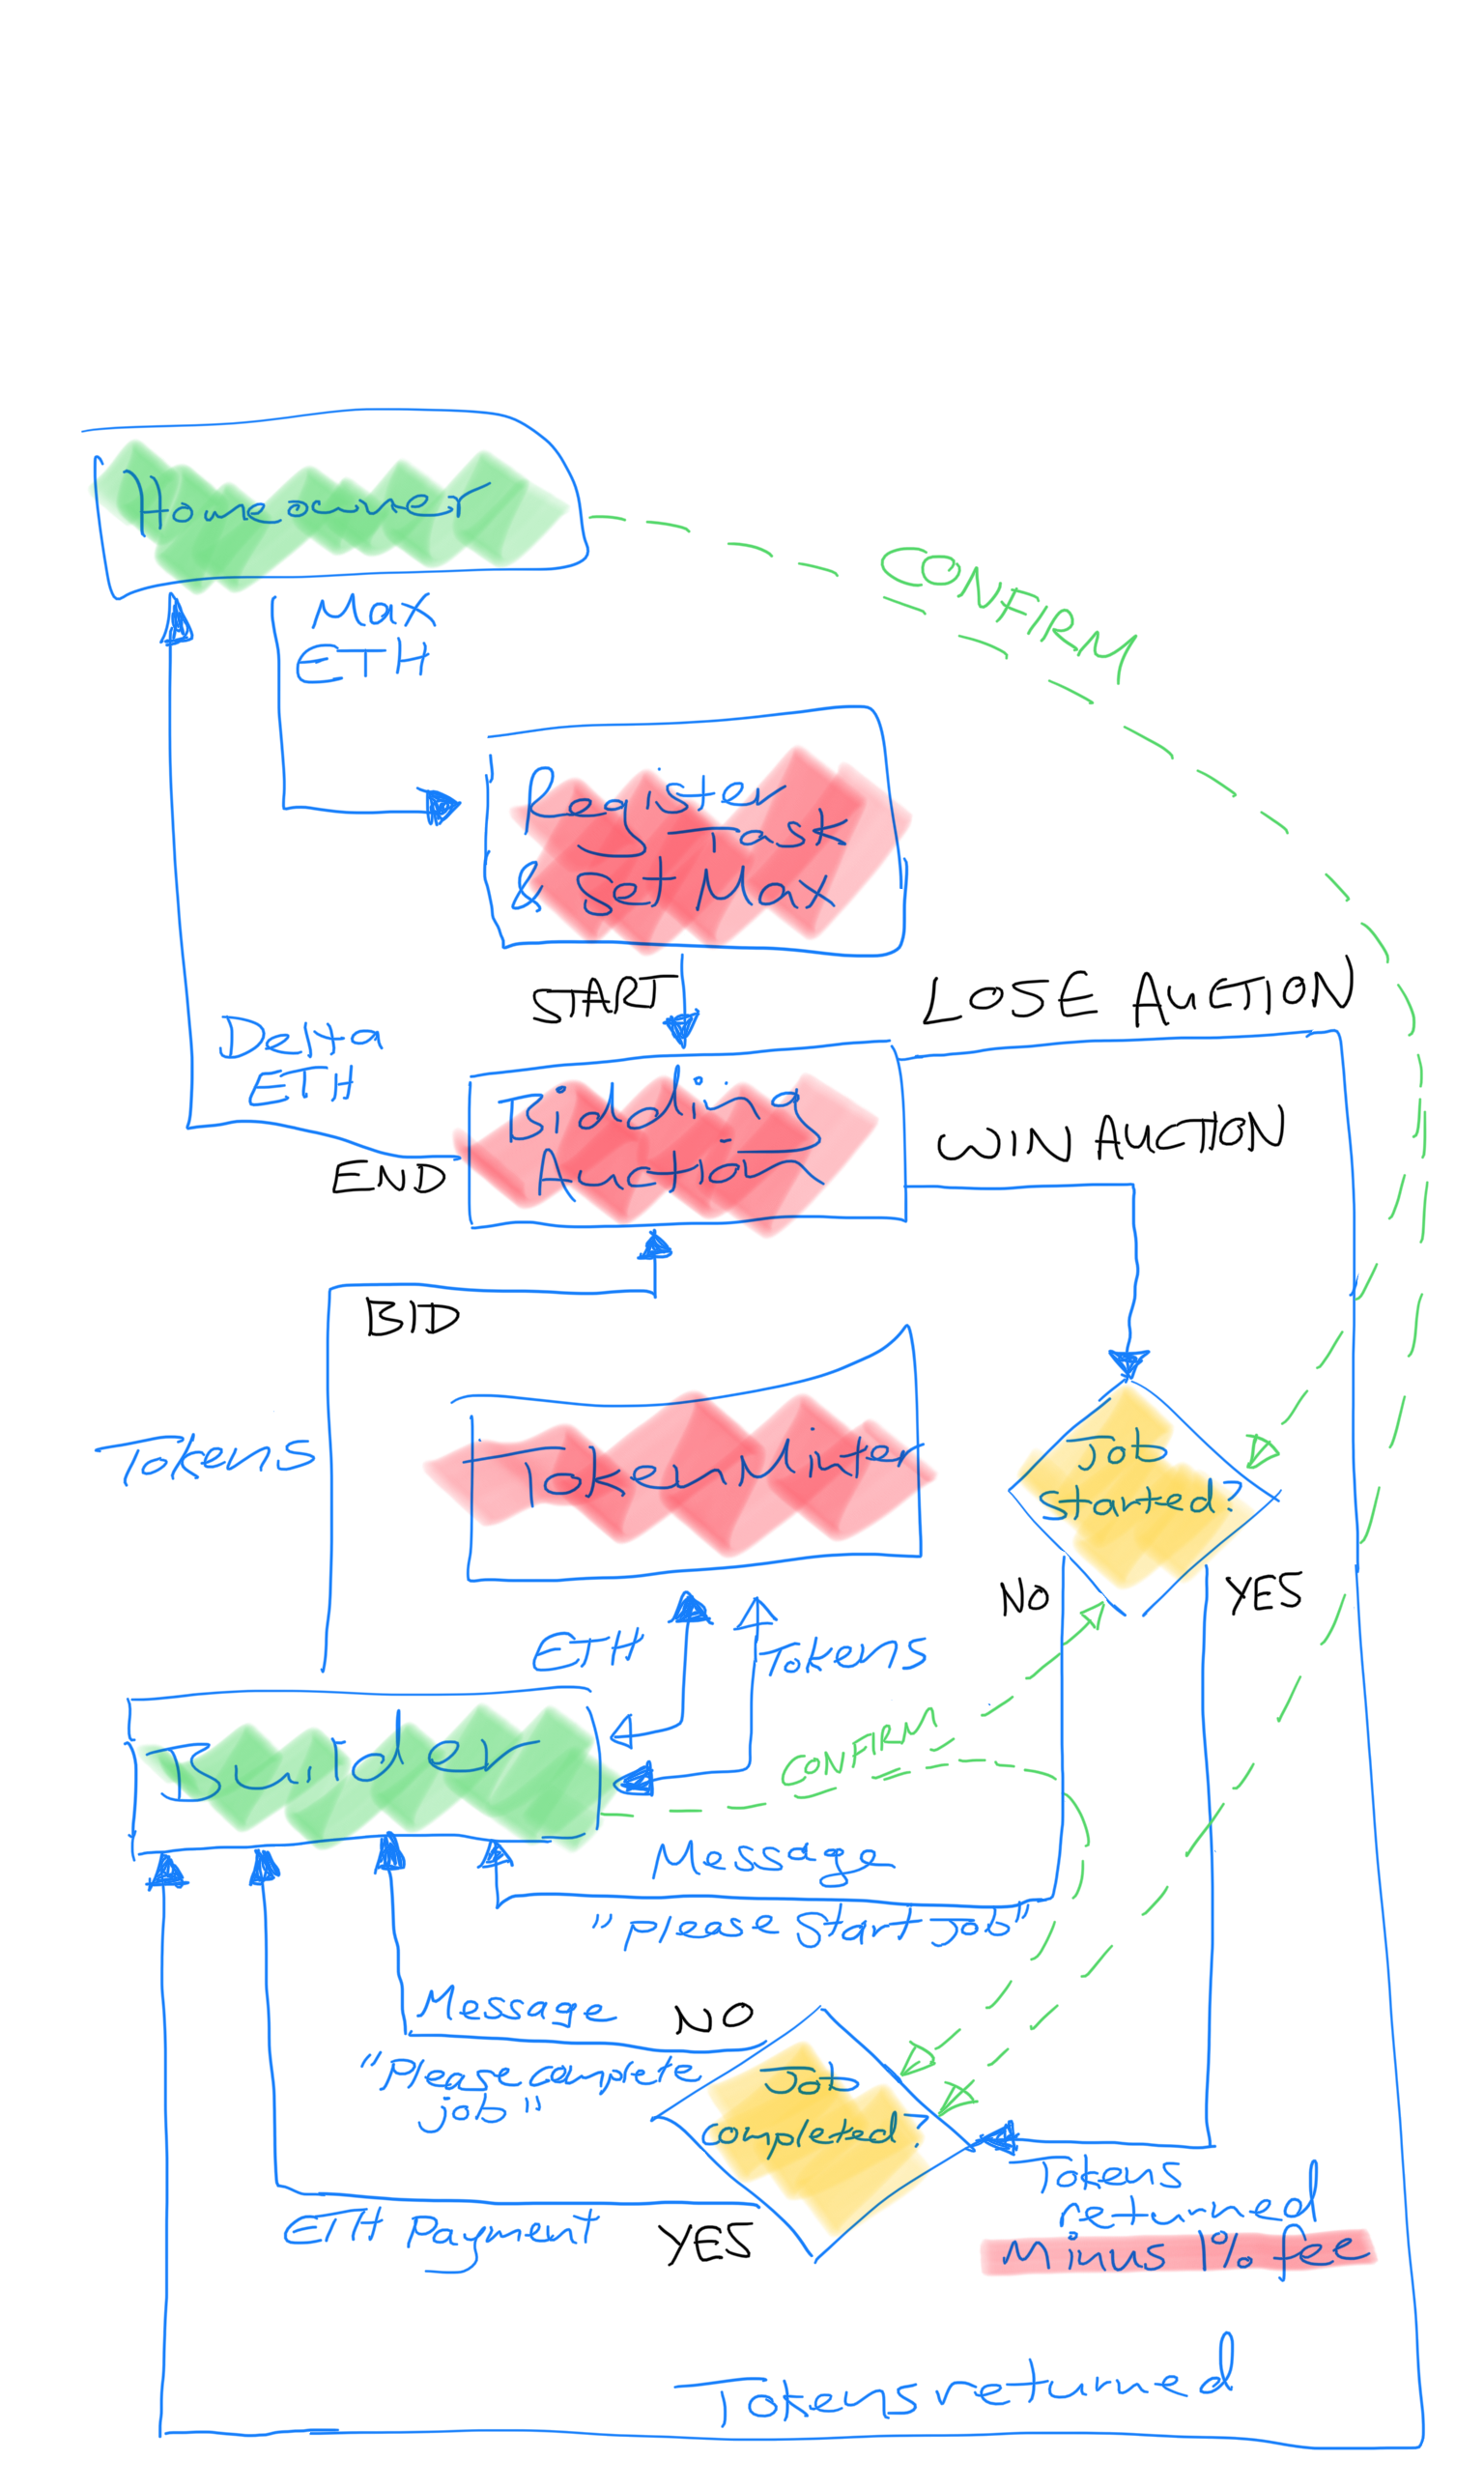 Homeowner
CONFIRM
Max
ETH
Register
Task
& Set Max
START
LOSE AUCTION
Delta
ETH
Bidding
Auction
WIN AUCTION
END
BID
Tokens
Token Minter
Job
started?
NO
YES
ETH
Tokens
Builder
CONFIRM
Message
"please start job"
Message
NO
"please complete
job"
Job
completed?
Tokens
returned
minus 1% fee
ETH Payment
YES
Tokens returned